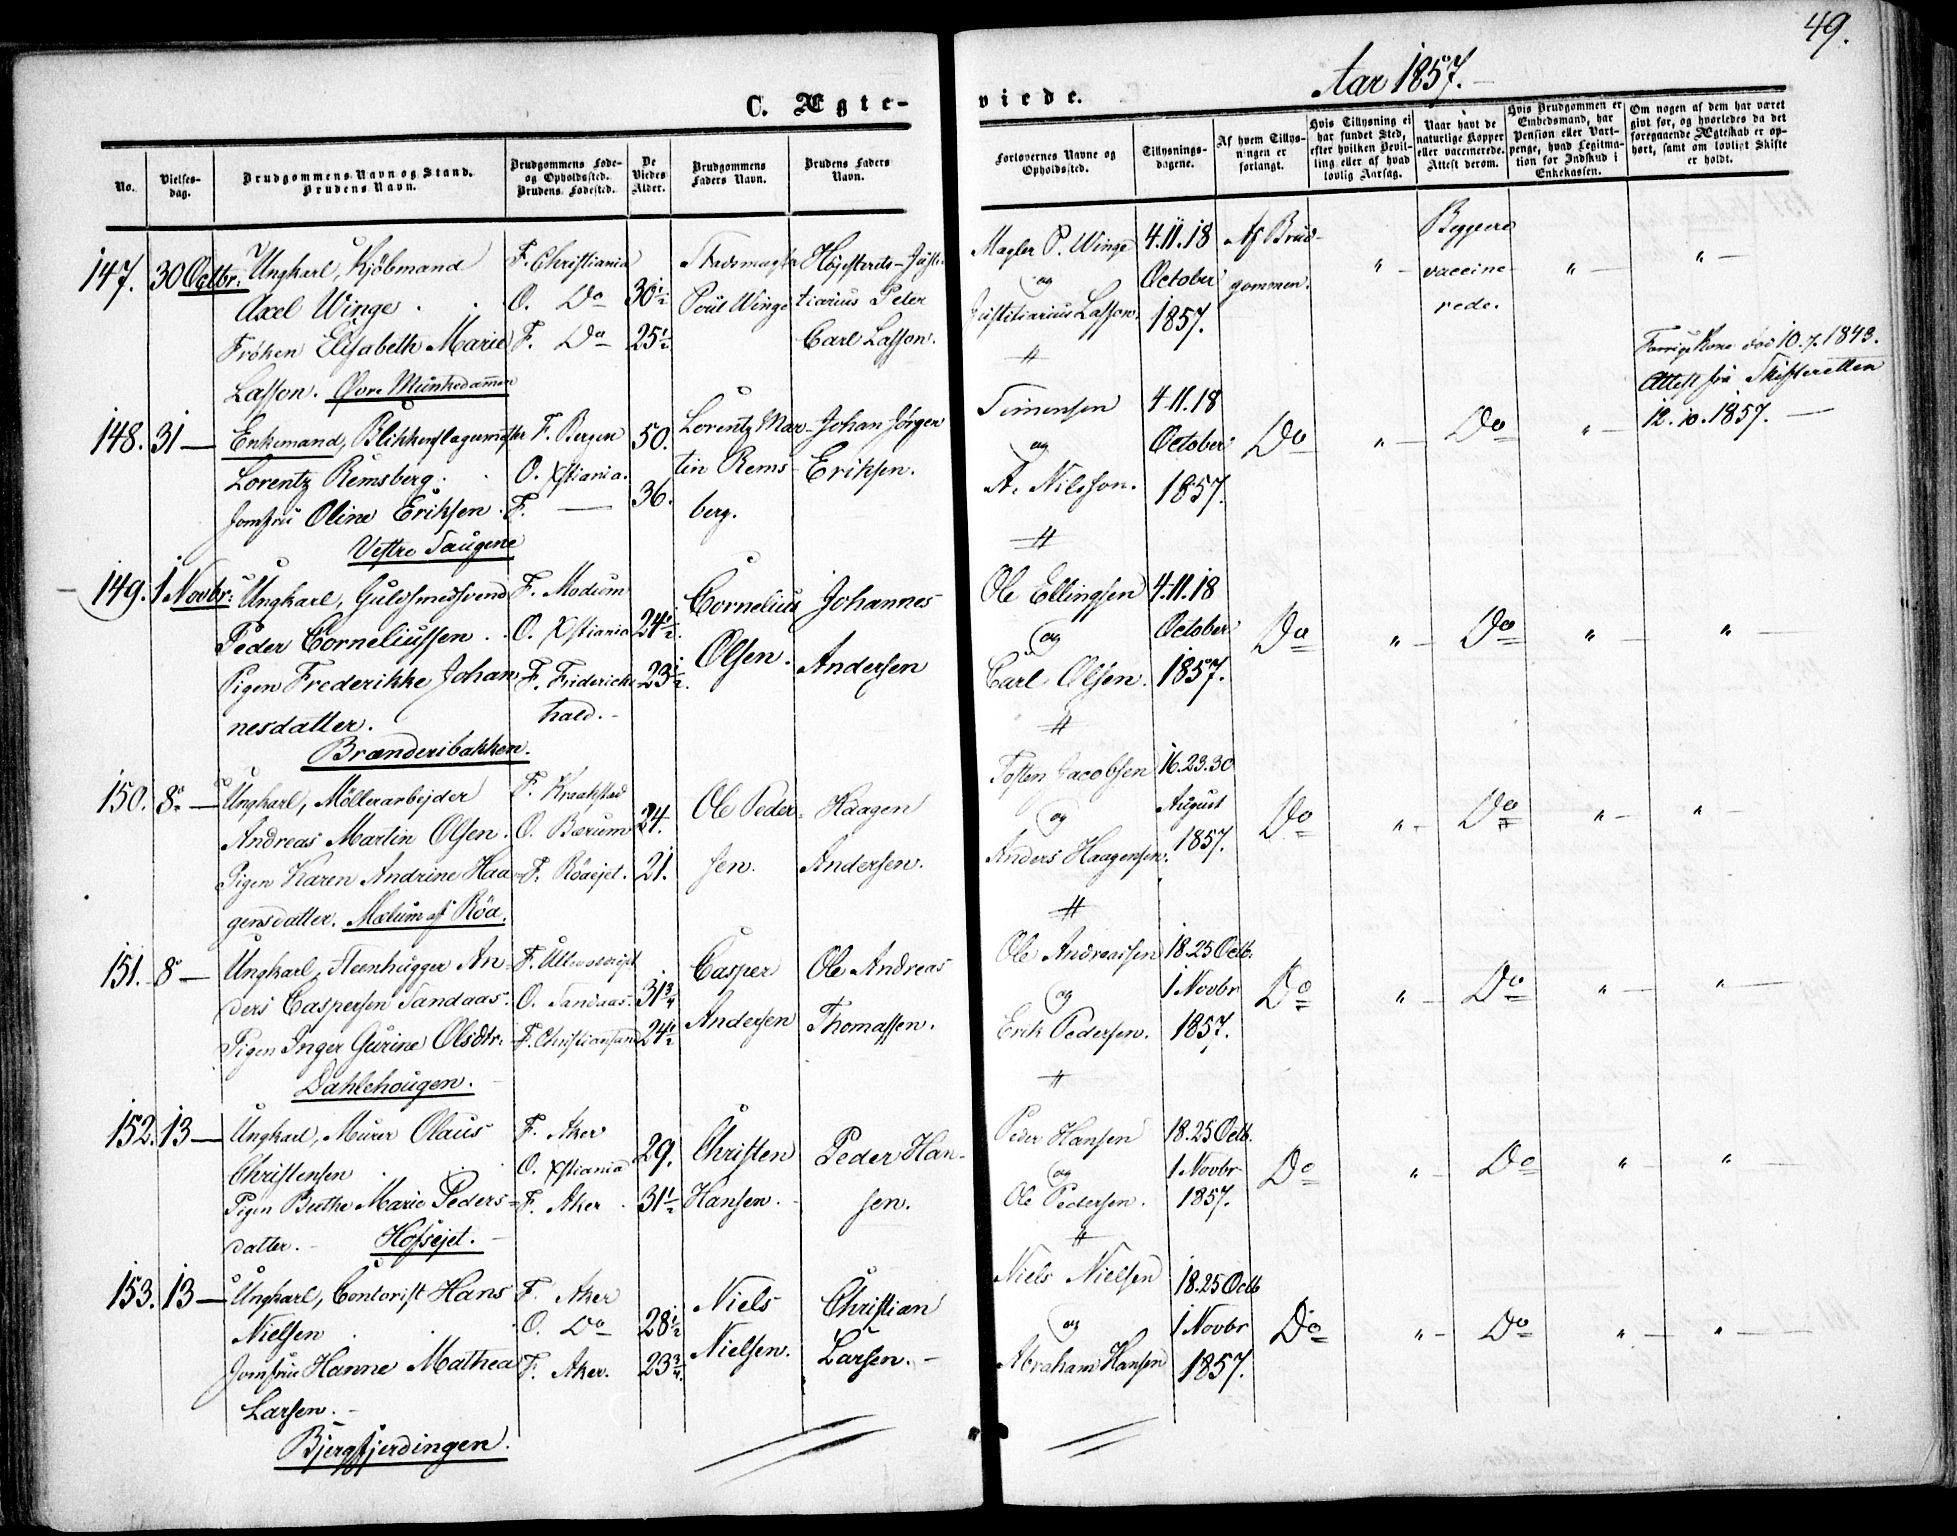 49.
Aar 1857.
C. Ægte-
viede.
No.
Vielses-
dag.
Brudgommens Navn og Stand.
Brudens Navn.
Brudgommens Føde-
og Opholdssted.
Brudens Fødested.
De
Viedes
Alder.
Brudgommens
Faders Navn.
Brudens Faders
Navn.
Forlovernes Navne og
Opholdssted.
Tillysnings-
dagene.
Af hvem Tillys-
ningen er
forlangt.
Hvis Tillysning ei
har fundet Sted,
efter hvilken Bevil-
ling eller af hvad
lovlig Aarsag.
Naar havt de
naturlige Kopper
eller vaccinerede.
Attest derom.
Hvis Brudgommen er
Embedsmand, har
Pension eller Vart-
penge, hvad Legitima-
tion for Indskud i
Enkekassen.
Om nogen af dem har været
givt før, og hvorledes da det
foregaaende Ægteskab er op-
hørt, samt om lovligt Skifte
er holdt.
147. 30 Octbr. Ungkarl, Kjøbmand F. Christiania
Axel Winge. O. Do 30½
Frøken Elisabeth Marie F. Do 25½
Lasson. Øvre Munkedammen
Poul Winge
Høiesterets-Justi-
tiarius Peter
Carl Lasson.
Mægler P. Winge
og
Justitiarius Lasson.
4.11.18
October
1857.
Af Brud-
gommen.
" -
Begge
vaccine-
rede.
" -
" -
148. 31 - Enkemand, Blikkenslagermester F. Bergen 50.
Lorentz Remsberg. O. Xstiania.
Jomfru Oline Eriksen. F. - 36.
Vestre Taugene
Lorentz Mar-
tin Rems-
berg.
Johan Jørgen
Eriksen.
Simensen
og
A. Nilsson.
4.11.18
October
1857.
Do
" -
Do
" -
Forrige Kone død 10.7.1843.
Attest fra Skifteretten
12.10.1857. -
149. 1 Novbr: Ungkarl, Guldsmedsvend F. Modum
Peder Corneliussen. O. Xstiania 24½.
Pigen Frederikke Johan F. Friderichs 23½.
nesdatter. hald. -
Brænderibakken.
Cornelius
Olsen.
Johannes
Andersen
Ole Ellingsen
og
Carl Olsen.
4.11.18
October
1857.
Do
" -
Do
" -
" -
150. 8. - Ungkarl, Møllerarbejder F. Kraakstad
Andreas Martin Olsen. O. Bærum 24.
Pigen Karen Andrine Haa- F. Röaejet. 21.
gensdatter. Mælum af Röa.
Ole Peder-
sen.
Haagen
Andersen.
Tosten Jacobsen
og
Anders Haagensen.
16.23.30
August
1857.
Do
" -
Do
" -
"
151. 8 - Ungkarl, Steenhugger An- F. Ullensvedejet
ders Caspersen Sandaas. O. Sandaas. 31¾
Pigen Inger Gurine Olsdtr. F. Christiansand 24½
Dahlehougen. -
Casper
Andersen
Ole Andreas
Thomassen.
Ole Andreassen
og
Erik Pedersen.
18.25 Octb.
1 Novbr
1857.
Do
" -
Do
" -
" -
152. 13 - Ungkarl, Murer Olaus F. Aker
Christensen O. Xstiania 29.
Pigen Berthe Marie Peders- F. Aker. 31½
datter. - Hofsejet. -
Christen
Hansen. -
Peder Han-
sen.
Peder Hansen
og
Ole Pedersen.
18.25 Octb.
1 Novbr
1857.
Do
" -
Do
" -
" -
153. 13 - Ungkarl, Contorist Hans F. Aker
Nielsen O. Do 28½
Jomfru Hanne Mathea F. Aker. 23¾.
Larsen. -
Bjergfjerdingen.
Niels
Nielsen.
Christian
Larsen. -
Niels Nielsen
og
Abraham Hansen
18.25 Octb
1 Novbr
1857.
Do
" -
Do
" -
" -